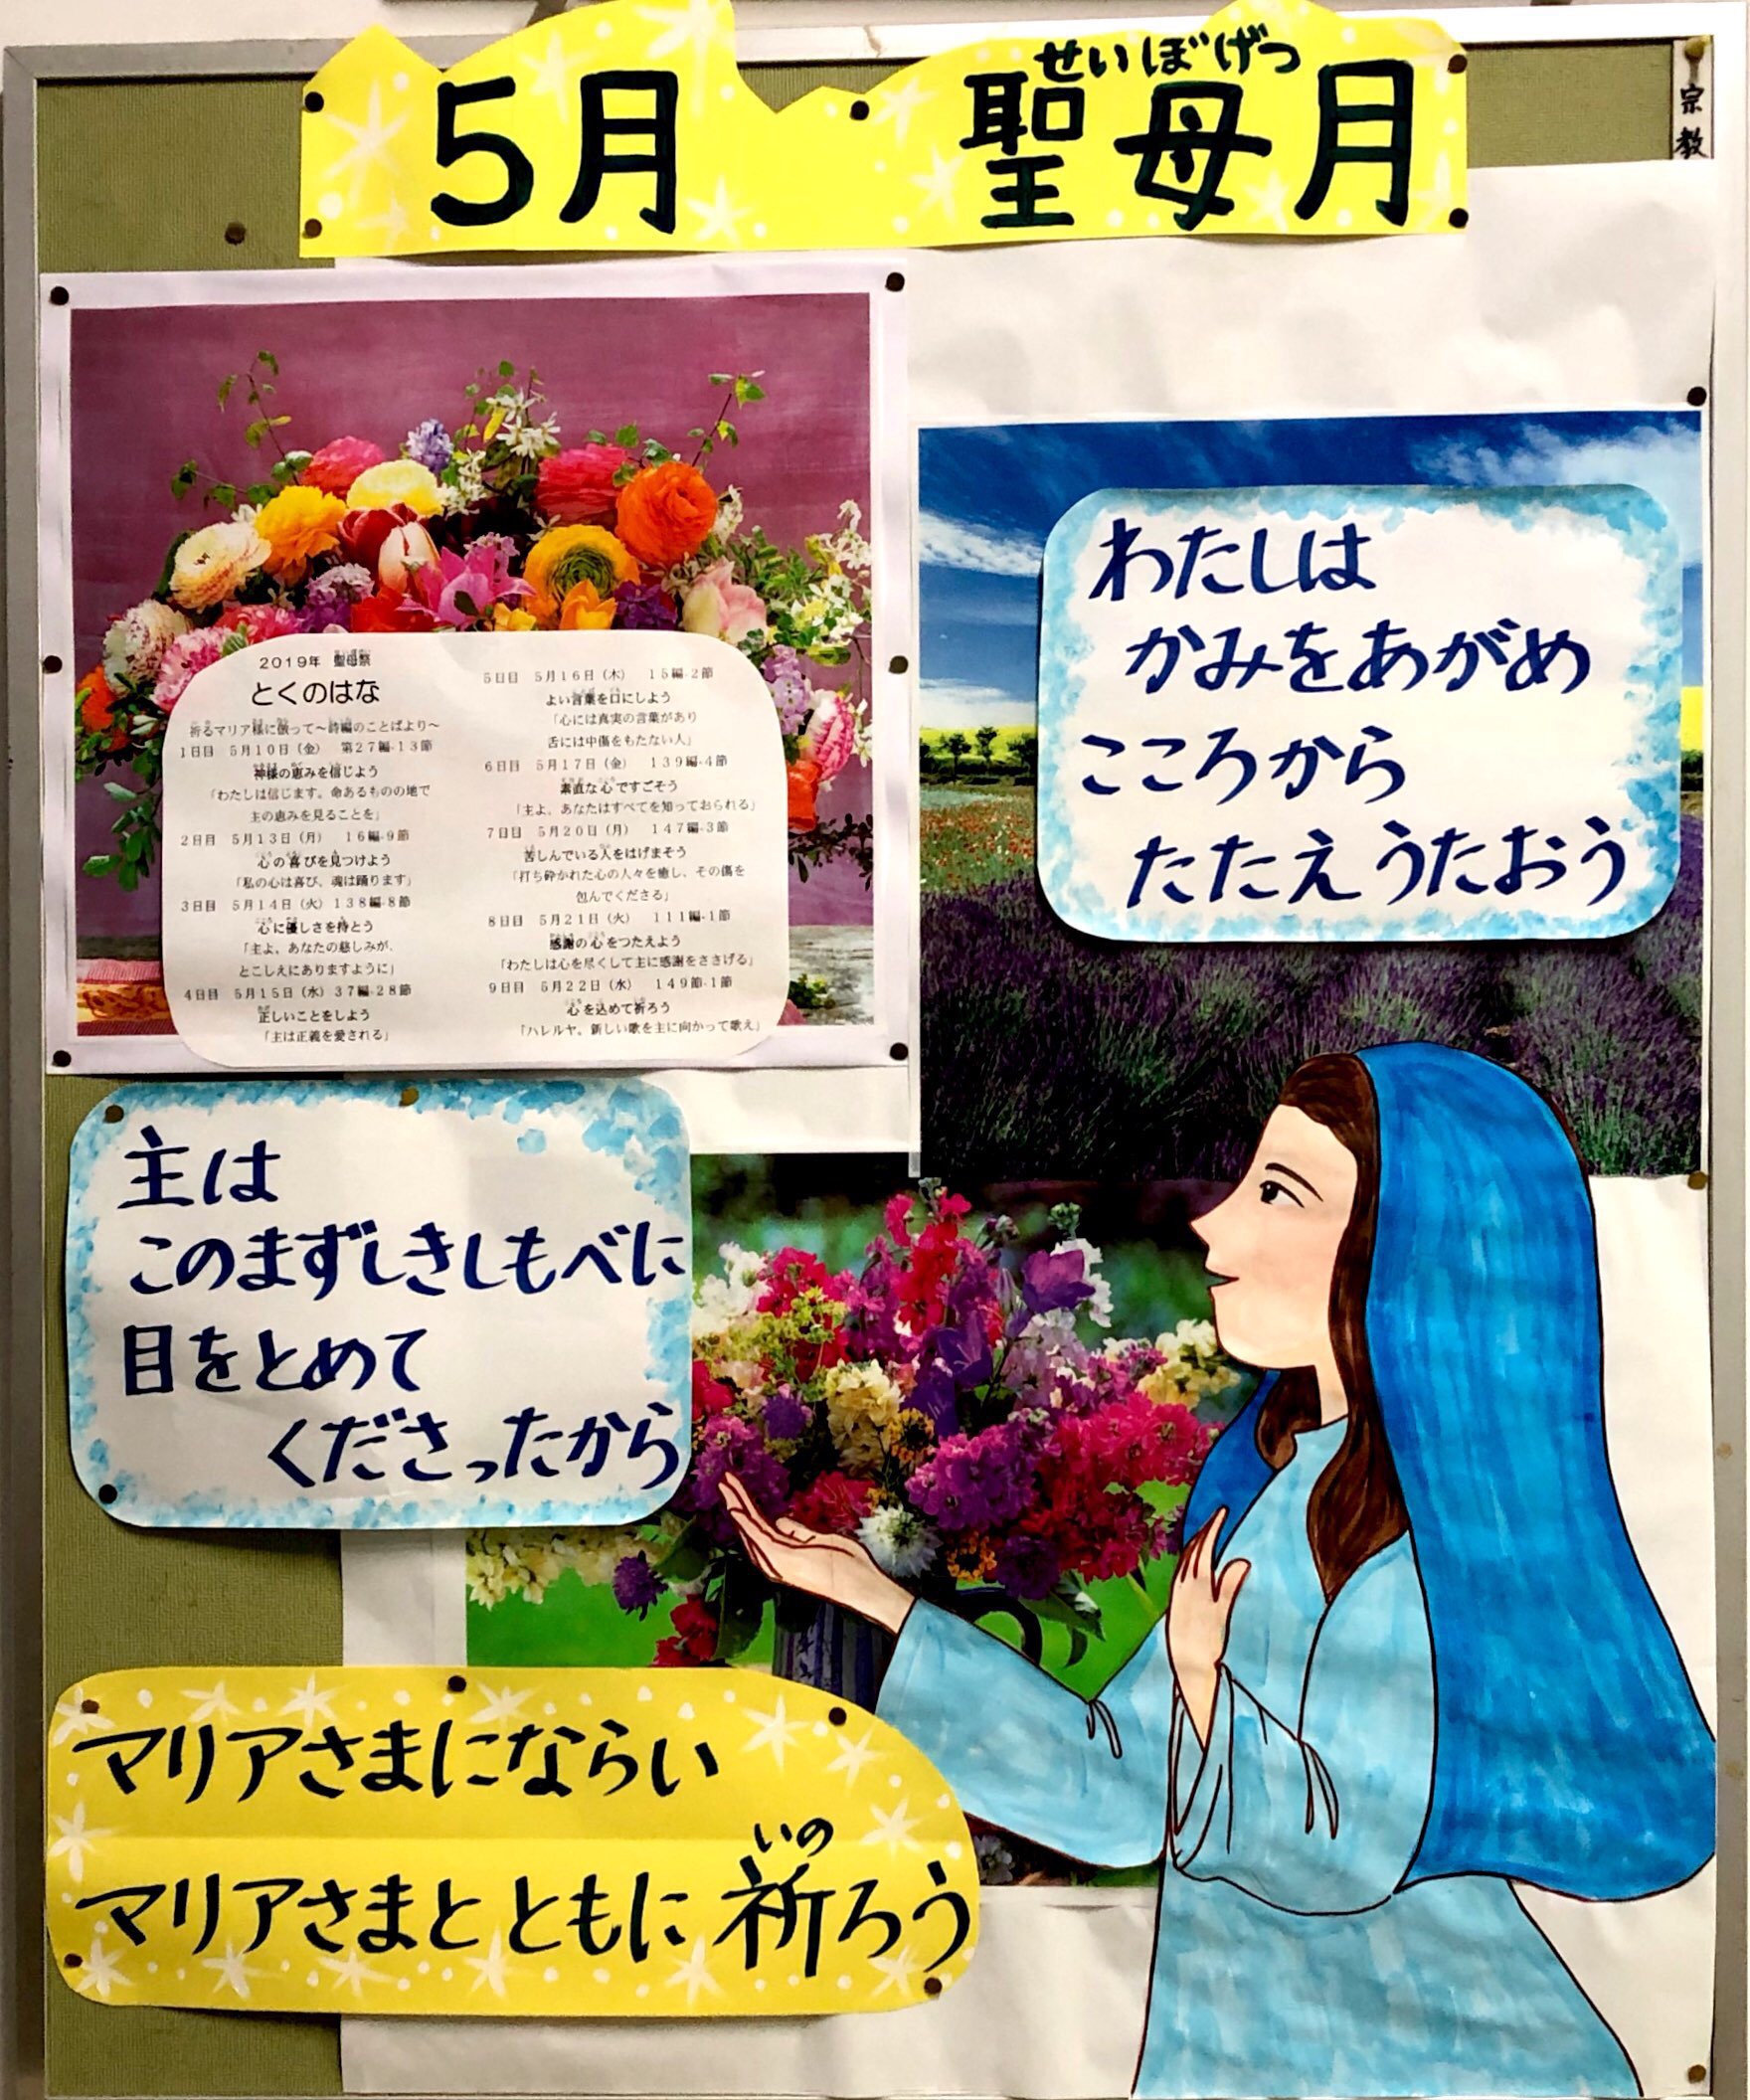 せいぼげつ
5月 聖母月
宗教
2019年 聖母祭
とくのはな
祈るマリア様に倣って～詩編のことばより～
1日目 5月10日（金） 第27編-13節
神様の恵みを信じよう
「わたしは信じます。命あるものの地で
主の恵みを見ることを」
2日目 5月13日（月） 16編-9節
心の喜びを見つけよう
「私の心は喜び、魂は踊ります」
3日目 5月14日（火）138編-8節
心に優しさを持とう
「主よ、あなたの慈しみが、
とこしえにありますように」
4日目 5月15日（水）37編-28節
正しいことをしよう
「主は正義を愛される」
5日目 5月16日（木） 15編-2節
よい言葉を口にしよう
「心には真実の言葉があり
舌には中傷をもたない人」
6日目 5月17日（金） 139編-4節
素直な心ですごそう
「主よ、あなたはすべてを知っておられる」
7日目 5月20日（月） 147編-3節
苦しんでいる人をはげまそう
「打ち砕かれた心の人々を癒し、その傷を
包んでくださる」
8日目 5月21日（火） 111編-1節
感謝の心をつたえよう
「わたしは心を尽くして主に感謝をささげる」
9日目 5月22日（水） 149節-1節
心を込めて祈ろう
「ハレルヤ。新しい歌を主に向かって歌え」
わたしは
かみをあがめ
こころから
たたえうたおう
主は
このまずしきしもべに
目をとめて
くださったから
マリアさまにならい
いの
マリアさまとともに祈ろう